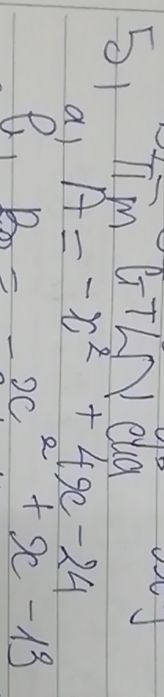 5, Tìm GTLN của
a, A = -x² + 4x - 24
b, B = -x² + x - 13